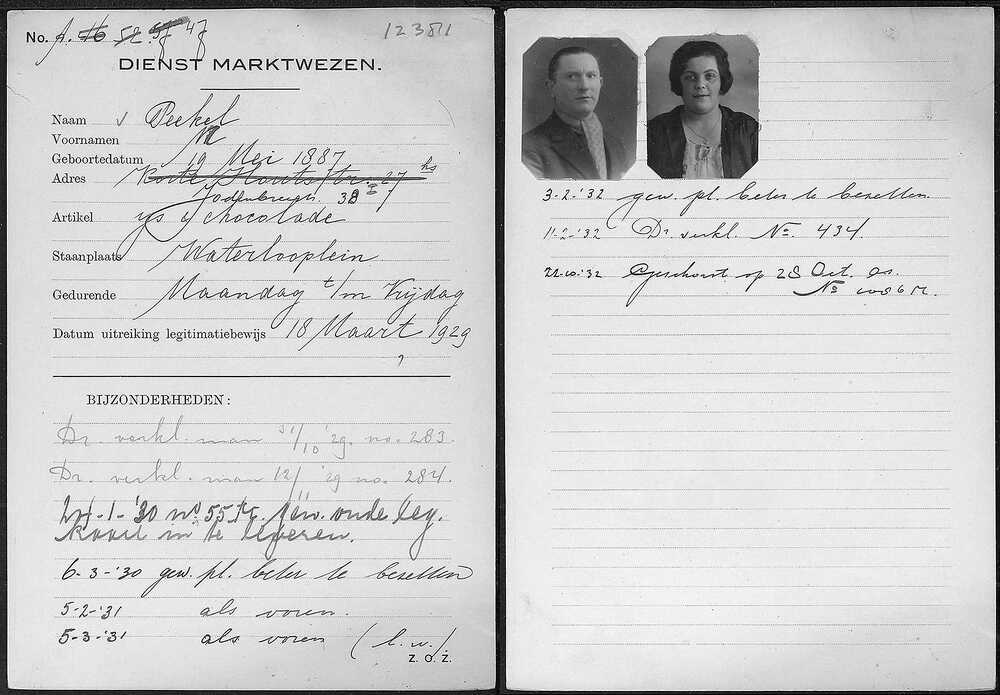 No. A. 16 52. 57 47
12381
DIENST MARKTWEZEN.
Naam v Peekel
Voornamen M
Geboortedatum 19 Mei 1887
Adres Korte Houtstr. 27 hs
Jodenbreestr. 38 I
Artikel ijs & chocolade
Staanplaats Waterlooplein
Gedurende Maandag t/m Vrijdag
Datum uitreiking legitimatiebewijs 18 Maart 1929
BIJZONDERHEDEN:
Dr. verkl. man 31/10 '29. no. 283.
Dr. verkl. man 12/ '29 no. 284.
24-1-'30 no 55 oude leg.
kaart in te leveren.
6-3-'30 gew. pl. beter te bezetten
5-2-'31 als voren.
5-3-'31 als voren (l.w.).
Z. O. Z.
3-2-'32 gew. pl. beter te bezetten.
11-2-'32 Dr. verkl. No. 434.
22-10-'32 Geschorst op 28 Oct. as.
No 1086 M.